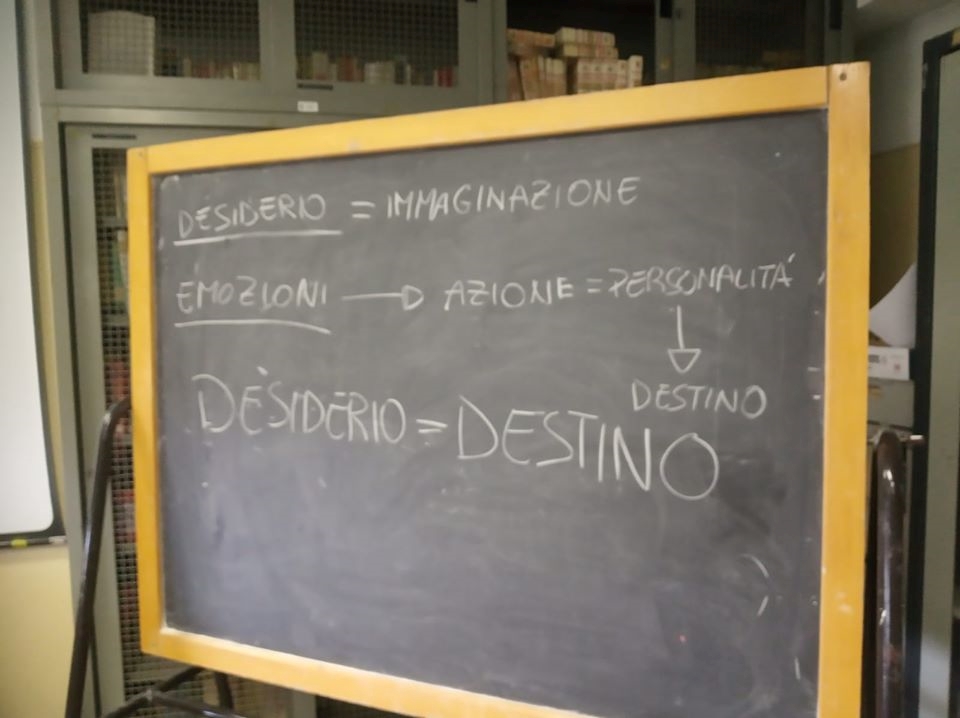 DESIDERIO = IMMAGINAZIONE
EMOZIONI → AZIONE = PERSONALITÀ
↓
DESTINO
DESIDERIO = DESTINO